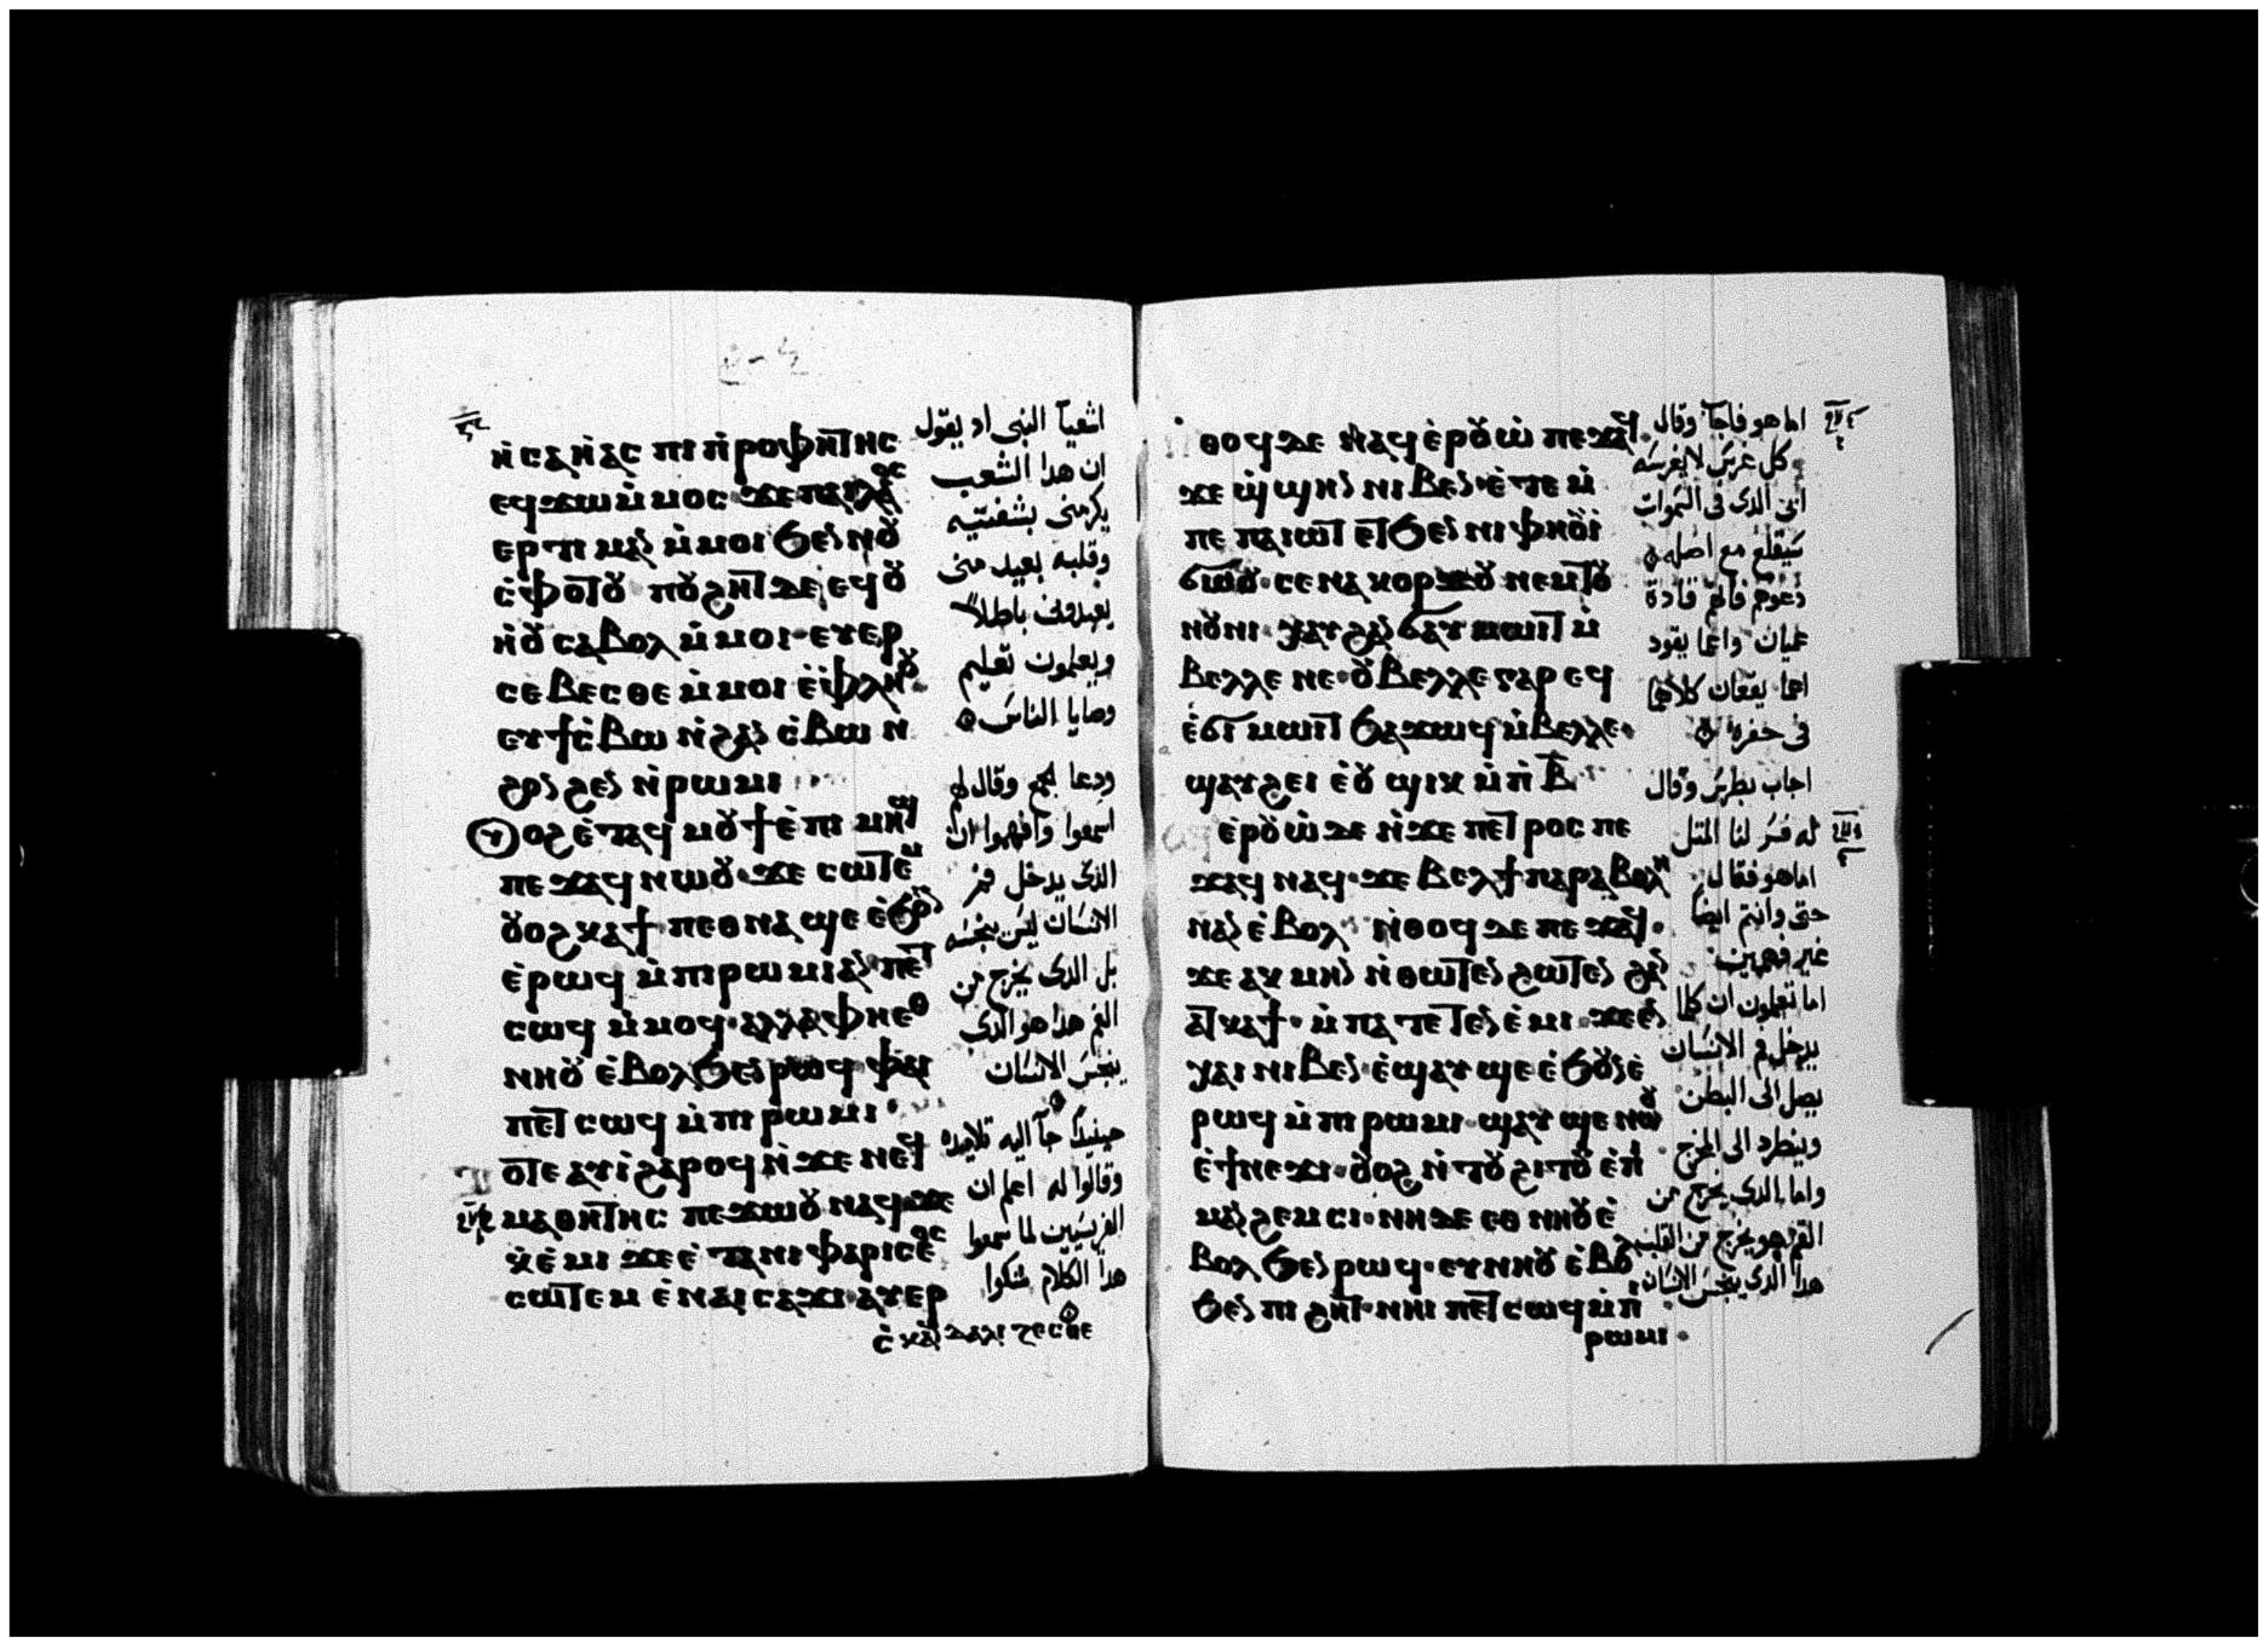 ⲛ̇ⲥⲁⲏ̇ⲁⲥ ⲡⲓ ⲡ̇ⲣⲟⲫⲏⲧⲏⲥ
ⲉϥϫⲱ ⲙ̇ⲙⲟⲥ ϫⲉ ⲡⲁⲓⲗⲁⲟⲥ
ⲉⲣⲧⲓⲙⲁⲛ ⲙ̇ⲙⲟⲓ ϧⲉⲛ ⲛⲟⲩ
ⲥ̇ⲫⲟⲧⲟⲩ ⲡⲟⲩϩⲏⲧ ⲇⲉ ϥⲟⲩ
ⲏ̇ⲟⲩ ⲥⲁⲃⲟⲗ ⲙ̇ⲙⲟⲓ ⲉⲩⲉⲣ
ⲥⲉⲃⲉⲥⲑⲉ ⲙ̇ⲙⲟⲓ ⲉ̇ⲫⲗⲏⲟⲩ
ⲉⲩϯⲥ̇ⲃⲱ ⲛ̇ϩⲁⲛ ⲥ̇ⲃⲱ ⲛ̇
ϩⲟⲛϩⲉⲛ ⲛ̇ⲣⲱⲙⲓ
ⲟⲩⲟϩ ⲉ̇ⲧⲁϥ ⲙⲟⲩϯ ⲉ̇ⲡⲓ ⲙⲏϣ
ⲡⲉϫⲁϥ ⲛⲱⲟⲩ ϫⲉ ⲥⲱⲧⲉⲙ
ⲟⲩⲟϩ ⲕⲁϯ ⲡⲉⲑⲛⲁϣⲉ ⲉ̇ϧⲟⲩⲛ
ⲉ̇ⲣⲱϥ ⲙ̇ⲡⲓⲣⲱⲙⲓ ⲁⲛ ⲡⲉⲧ
ⲥⲱϥ ⲙ̇ⲙⲟϥ ⲁⲗⲗⲁ ⲫⲏⲉⲑ
ⲛⲏⲟⲩ ⲉ̇ⲃⲟⲗ ϧⲉⲛ ⲣⲱϥ ⲫⲁⲓ
ⲡⲉⲧ ⲥⲱϥ ⲙ̇ⲡⲓ ⲣⲱⲙⲓ
ⲟⲧⲉ ⲁⲩⲓ̇ ϩⲁⲣⲟϥ ⲛ̇ϫⲉ ⲛⲉϥ
ⲙⲁⲑⲏⲧⲏⲥ ⲡⲉϫⲱⲟⲩ ⲛⲁϥ ϫⲉ
ⲭ̇ⲉ̇ⲙⲓ ϫⲉ ⲉ̇ⲧⲁ ⲛⲓ ⲫⲁⲣⲓⲥⲉⲟⲥ
ⲥⲱⲧⲉⲙ ⲉ̇ⲛⲁⲓ ⲥⲁϫⲓ ⲁⲩⲉⲣ
ⲥ̇ⲕⲁⲛⲇⲁⲗⲓⲍⲉⲥⲑⲉ
اشعيآ النبى اد يقول
ان هدا الشعب
يكرمنى بشفتيه
وقلبه بعيد منى
يعبدوننى باطلاً
ويعلمون تعليم
وصايا الناس
ودعا الجمع وقال لهم
اسمعوا وافهموا ان
الذى يدخل فم
الانسان ليس ينجسه
بل الدى يخرج من
الفم هدا هو الدى
ينجس الانسان
حينيد جآ اليه تلاميده
وقالوا له اعلم ان
الفريسيين لما سمعوا
هدا الكلام شكوا
ⲛ̇ⲑⲟϥ ⲇⲉ ⲛⲁϥ ⲉ̇ⲣⲟⲩⲱ̇ ⲡⲉϫⲁϥ
ϫⲉ ϣ̇ϣⲏⲛ ⲛⲓⲃⲉⲛ ⲉ̇ⲧⲉ ⲙ̇
ⲡⲉ ⲡⲁⲓⲱⲧ ⲉⲧϧⲉⲛ ⲛⲓⲫⲏⲟⲩⲓ̇
ϭⲱⲟⲩ ⲥⲉⲛⲁⲕⲟⲣϫⲟⲩ ⲛⲉⲙ ⲧⲟⲩ
ⲛⲟⲩⲛⲓ ⲭⲁⲩ ϩⲁⲛ ϭⲁⲩⲙⲱⲓⲧ ⲙ̇
ⲃⲉⲗⲗⲉ ⲛⲉ ⲟⲩⲃⲉⲗⲗⲉ ⲅⲁⲣ ⲉϥ
ⲉ̇ϭⲓⲙⲱⲓⲧ ϧⲁϫⲱϥ ⲙ̇ⲃⲉⲗⲗⲉ
ϣⲁⲩϩⲉⲓ ⲉ̇ⲟⲩ ϣⲓⲕ ⲙ̇ⲡ̇ⲃ̅
ⲉ̇ⲣⲟⲩⲱ̇ ⲇⲉ ⲛ̇ϫⲉ ⲡⲉⲧⲣⲟⲥ ⲡⲉ
ϫⲁϥ ⲛⲁϥ ϫⲉ ⲃⲉⲗ ϯⲡⲁⲣⲁⲃⲟⲗⲏ
ⲛⲁⲛ ⲉ̇ⲃⲟⲗ ⲛ̇ⲑⲟϥ ⲇⲉ ⲡⲉϫⲁϥ
ϫⲉ ⲁⲕⲙⲏⲛ ⲛ̇ⲑⲱⲧⲉⲛ ϩⲱⲧⲉⲛ ϩⲁⲛ
ⲁⲧⲕⲁϯ ⲙ̇ⲡⲁⲧⲉⲧⲉⲛⲉ̇ⲙⲓ ϫⲉ ⲉⲛ
ⲭⲁⲓ ⲛⲓⲃⲉⲛ ⲉ̇ϣⲁⲩϣⲉ ⲉ̇ϧⲟⲩⲛ ⲉ̇
ⲣⲱϥ ⲙ̇ⲡⲓⲣⲱⲙⲓ ϣⲁⲩϣⲉ ⲛⲱⲟⲩ
ⲉ̇ϯⲛⲉϫⲓ ⲟⲩⲟϩ ⲛ̇ⲧⲟⲩϩⲓⲧⲟⲩ ⲉ̇ⲡ̇
ⲙⲁⲛϩⲉⲙⲥⲓ ⲛⲏ ⲇⲉ ⲉⲑⲛⲏⲟⲩ ⲉ̇
ⲃⲟⲗ ϧⲉⲛ ⲣⲱϥ ⲉⲩⲛⲏⲟⲩ ⲉ̇ⲃⲟ
ϧⲉⲛ ⲡⲓϩⲏⲧ ⲛⲏⲓ ⲡⲉⲧⲥⲱϥ ⲙ̇ⲡ̇
ⲣⲱⲙⲓ
اما هو فاجآب وقال
كل غرس لا يغرسه
ابى الدى فى السموات
سيقلع مع اصله
دعوهم فانهم قادة
عميان واعما يقود
اعما يقعان كلاهما
فى حفره
اجاب بطرس وقال
له فسر لنا المتل
اما هو فقال
حتى وانتم ايضا
غير فهمين
اما تعلمون ان كلما
يدخل فم الانسان
يصل الى البطن
وينطرد الى المخرج
واما الدى يخرج من
الفم فهو يخرج من القلب
هدا الدى ينجس الانسان